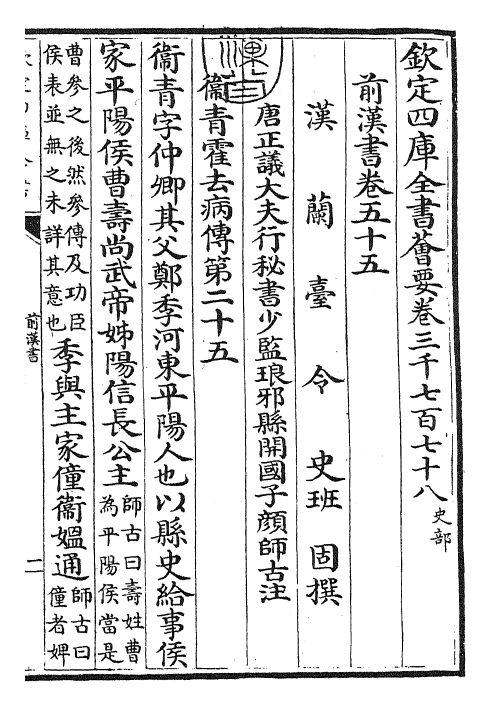 欽定四庫全書薈要卷三千七百七十八 史部
前漢書卷五十五
漢蘭臺令史班固撰
唐正議大夫行秘書少監琅邪縣開國子顏師古注
衞青霍去病傳第二十五
衞青字仲卿其父鄭季河東平陽人也以縣吏給事侯
家平陽侯曹壽尚武帝姊陽信長公主師古曰壽姓曹為平陽侯當是
曹參之後然參傳及功臣侯表並無之未詳其意也季與主家僮衞媼通師古曰僮者婢
前漢書
二